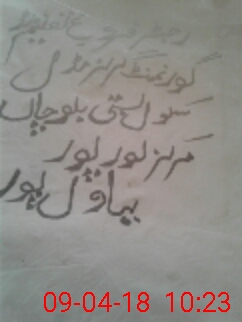 رجسٹر
گورنمنٹ گرلز ماڈل
سکول بستی بلوچاں
مرکز نور پور
بہاولپور
09-04-18 10:23